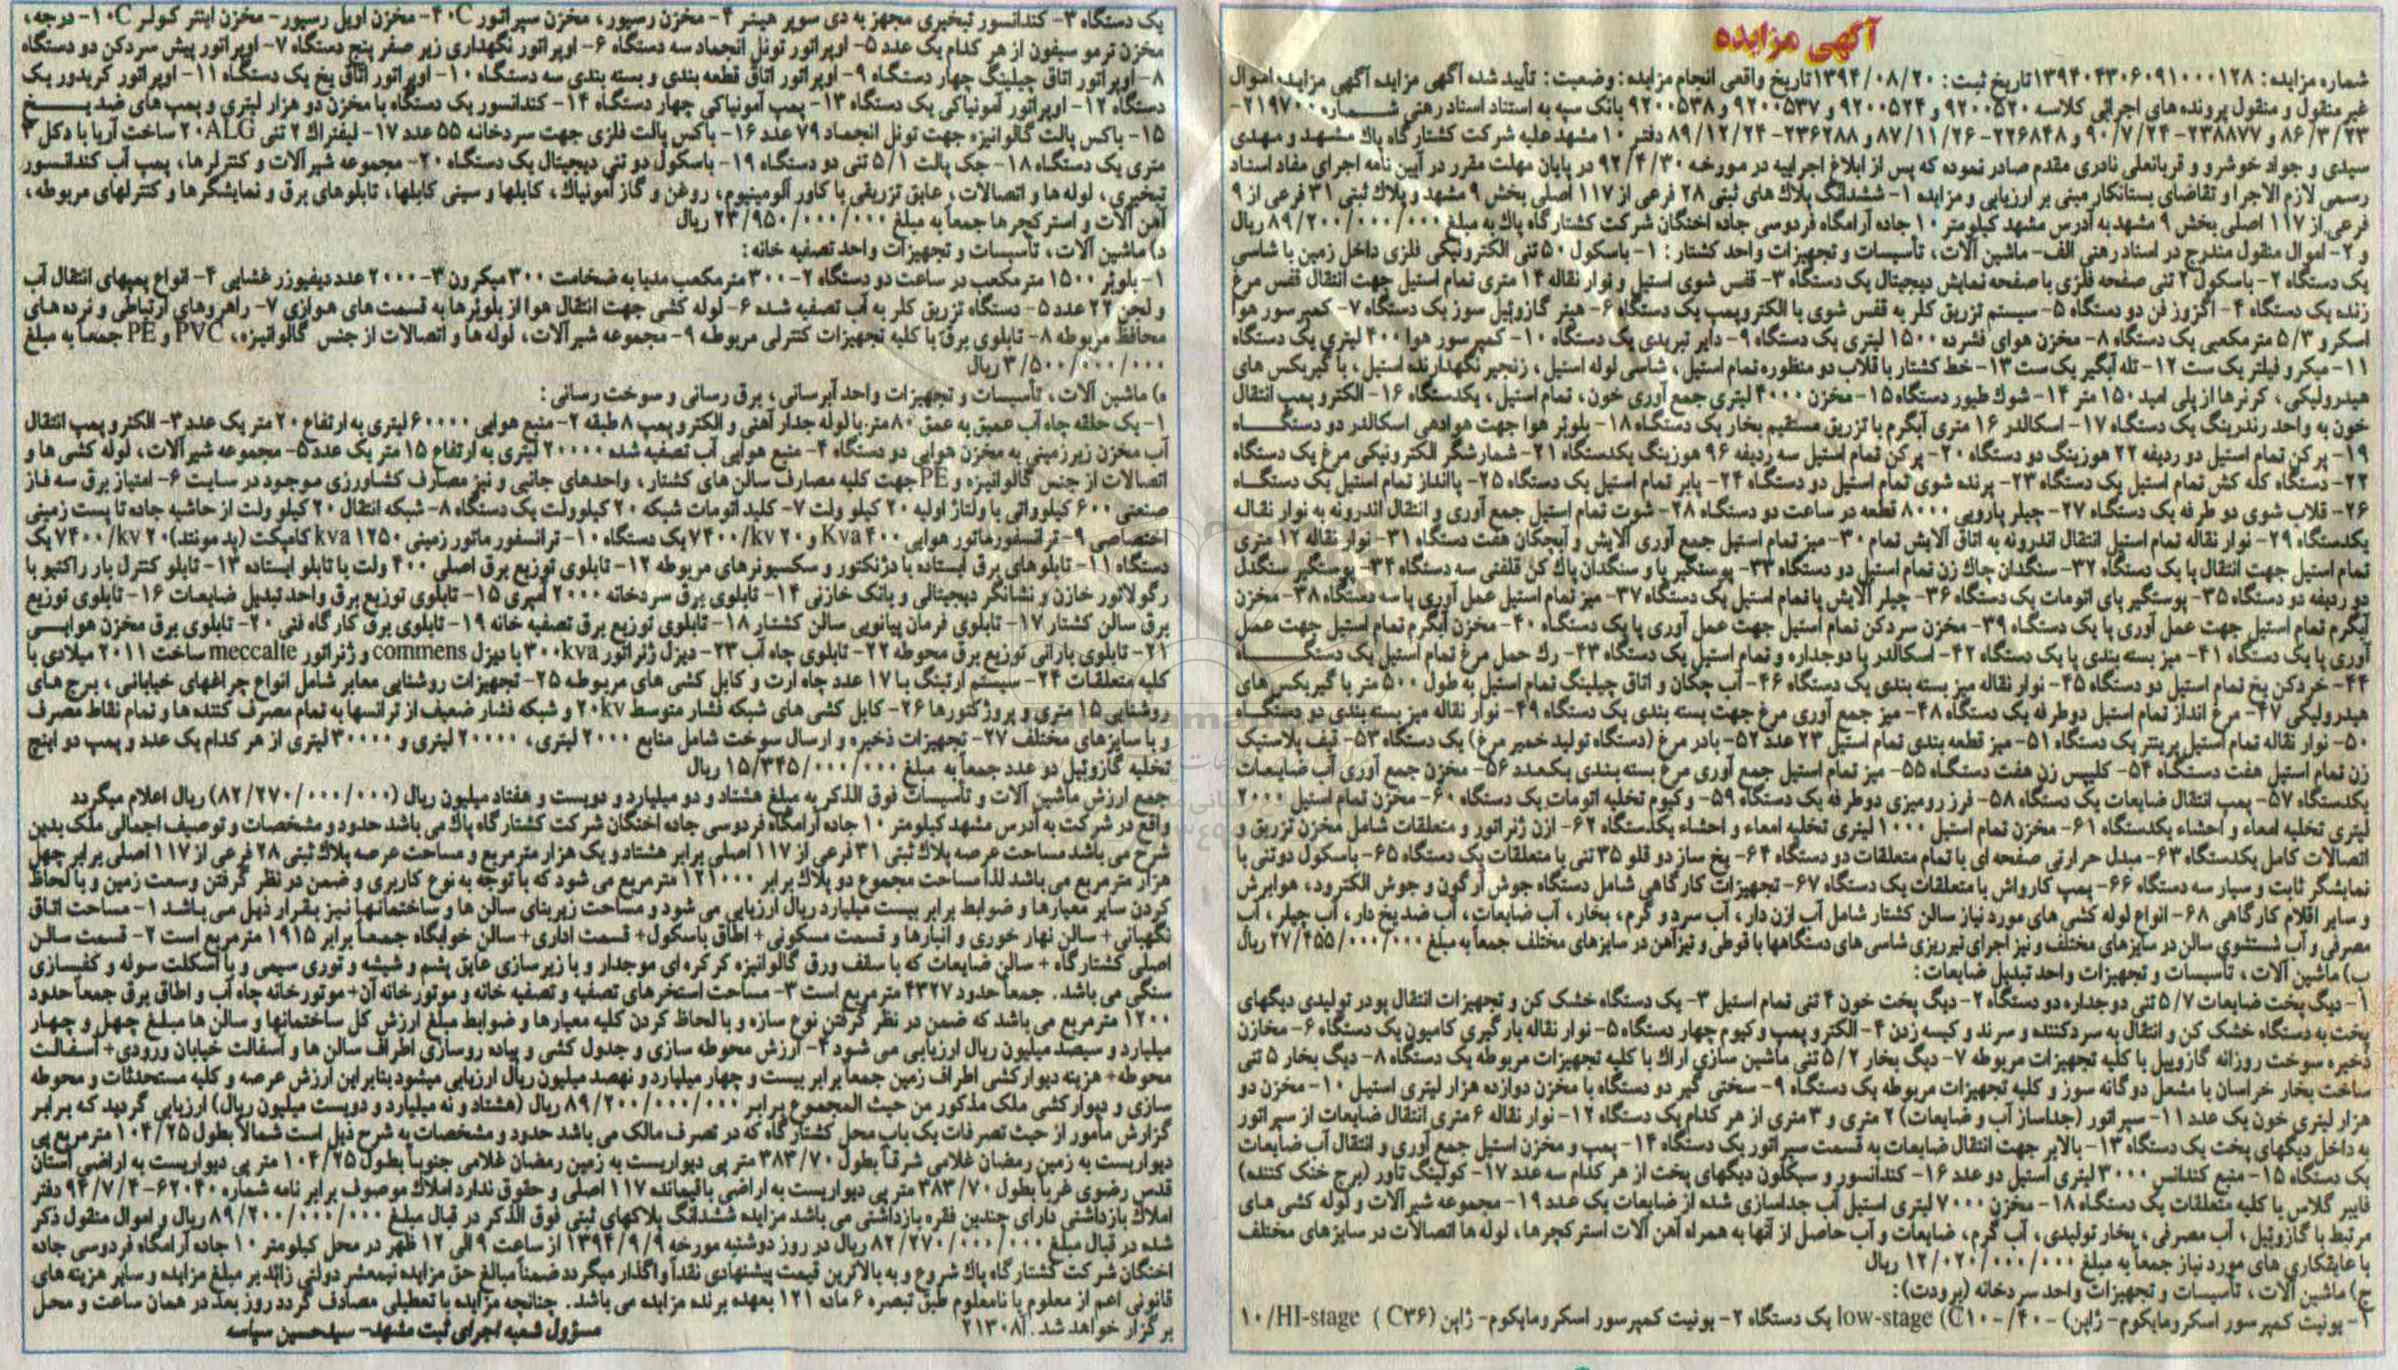 آگهی مزایده
شماره مزایده: ۱۳۹۴۰۴۳۰۶۰۹۱۰۰۰۱۲۸ تاریخ ثبت: ۱۳۹۴/۰۸/۲۰ تاریخ واقعی انجام مزایده: وضعیت: تأیید شده آگهی مزایده آگهی مزایده اموال
غیر منقول و منقول پرونده های اجرائی کلاسه ۹۲۰۰۵۲۰ و ۹۲۰۰۵۲۴ و ۹۲۰۰۵۳۷ و ۹۲۰۰۵۳۸ بانک سپه به استناد اسناد رهنی شماره ۲۱۹۷۰۰-
۸۶/۳/۲۳ و ۲۳۸۸۷۷-۹۰/۷/۲۴ و ۲۲۶۸۴۸-۸۷/۱۱/۲۶ و ۲۳۶۲۸۸-۸۹/۱۲/۲۴ دفتر ۱۰ مشهد علیه شرکت کشتارگاه پاک مشهد و مهدی
سیدی و جواد خوشرو و قربانعلی نادری مقدم صادر نموده که پس از ابلاغ اجراییه در مورخه ۹۲/۴/۳۰ در پایان مهلت مقرر در آیین نامه اجرای مفاد اسناد
رسمی لازم الاجرا و تقاضای بستانکار مبنی بر ارزیابی و مزایده ۱- ششدانگ پلاک های ثبتی ۲۸ فرعی از ۱۱۷ اصلی بخش ۹ مشهد و پلاک ثبتی ۳۱ فرعی از ۹
فرعی از ۱۱۷ اصلی بخش ۹ مشهد به آدرس مشهد کیلومتر ۱۰ جاده آرامگاه فردوسی جاده اخنگان شرکت کشتارگاه پاک به مبلغ ۸۹/۲۰۰/۰۰۰/۰۰۰ ریال
و ۲- اموال منقول مندرج در اسناد رهنی الف- ماشین آلات، تأسیسات و تجهیزات واحد کشتار: ۱- باسکول ۵۰ تنی الکترونیکی فلزی داخل زمین با شاسی
یک دستگاه ۲- باسکول ۲ تنی صفحه فلزی با صفحه نمایش دیجیتال یک دستگاه ۳- قفس شوی استیل و نوار نقاله ۱۴ متری تمام استیل جهت انتقال قفس مرغ
زنده یک دستگاه ۴- اگزوز فن دو دستگاه ۵- سیستم تزریق کلر به قفس شوی با الکتروپمپ یک دستگاه ۶- هیتر گازوئیل سوز یک دستگاه ۷- کمپرسور هوا
اسکرو ۵/۳ مترمکعبی یک دستگاه ۸- مخزن هوای فشرده ۱۵۰۰ لیتری یک دستگاه ۹- درایر تبریدی یک دستگاه ۱۰- کمپرسور هوا ۴۰۰ لیتری یک دستگاه
۱۱- میکرو فیلتر یک ست ۱۲- تله آبگیر یک ست ۱۳- خط کشتار با قلاب دو منظوره تمام استیل، شاسی لوله استیل، زنجیر نگهدارنده استیل، با گیربکس های
هیدرولیکی، کرنرها از پلی امید ۱۵۰ متر ۱۴- شوک طیور دستگاه ۱۵- مخزن ۴۰۰۰ لیتری جمع آوری خون، تمام استیل، یکدستگاه ۱۶- الکترو پمپ انتقال
خون به واحد رندرینگ یک دستگاه ۱۷- اسکالدر ۱۶ متری آبگرم با تزریق مستقیم بخار یک دستگاه ۱۸- بلوئر هوا جهت هوادهی اسکالدر دو دستگاه
۱۹- پرکن تمام استیل دو ردیفه ۲۲ هوزینگ دو دستگاه ۲۰- پرکن تمام استیل سه ردیفه ۹۶ هوزینگ یکدستگاه ۲۱- شمارشگر الکترونیکی مرغ یک دستگاه
۲۲- دستگاه کله کش تمام استیل یک دستگاه ۲۳- پرنده شوی تمام استیل دو دستگاه ۲۴- پابر تمام استیل یک دستگاه ۲۵- پاانداز تمام استیل یک دستگاه
۲۶- قلاب شوی دو طرفه یک دستگاه ۲۷- چیلر پارویی ۸۰۰۰ قطعه در ساعت دو دستگاه ۲۸- شوت تمام استیل جمع آوری و انتقال اندرونه به نوار نقاله
یکدستگاه ۲۹- نوار نقاله تمام استیل انتقال اندرونه به اتاق آلایش تمام ۳۰- میز تمام استیل جمع آوری آلایش و آبچکان هفت دستگاه ۳۱- نوار نقاله ۱۲ متری
تمام استیل جهت انتقال پا یک دستگاه ۳۲- سنگدان چاک زن تمام استیل دو دستگاه ۳۳- پوستگیر پا و سنگدان پاک کن قلفتی سه دستگاه ۳۴- پوستگیر سنگدل
دو ردیفه دو دستگاه ۳۵- پوستگیر پای اتومات یک دستگاه ۳۶- چیلر آلایش پا تمام استیل یک دستگاه ۳۷- میز تمام استیل عمل آوری پا سه دستگاه ۳۸- مخزن
آبگرم تمام استیل جهت عمل آوری پا یک دستگاه ۳۹- مخزن سردکن تمام استیل جهت عمل آوری پا یک دستگاه ۴۰- مخزن آبگرم تمام استیل جهت عمل
آوری پا یک دستگاه ۴۱- میز بسته بندی پا یک دستگاه ۴۲- اسکالدر پا دوجداره و تمام استیل یک دستگاه ۴۳- رک حمل مرغ تمام استیل یک دستگاه
۴۴- خردکن یخ تمام استیل دو دستگاه ۴۵- نوار نقاله میز بسته بندی یک دستگاه ۴۶- آب چکان و اتاق چیلینگ تمام استیل به طول ۵۰۰ متر با گیربکس های
هیدرولیکی ۴۷- مرغ انداز تمام استیل دوطرفه یک دستگاه ۴۸- میز جمع آوری مرغ جهت بسته بندی یک دستگاه ۴۹- نوار نقاله میز بسته بندی دو دستگاه
۵۰- نوار نقاله تمام استیل پرینتر یک دستگاه ۵۱- میز قطعه بندی تمام استیل ۲۳ عدد ۵۲- بادر مرغ (دستگاه تولید خمیر مرغ) یک دستگاه ۵۳- قیف پلاستیک
زن تمام استیل هفت دستگاه ۵۴- کلیپس زن هفت دستگاه ۵۵- میز تمام استیل جمع آوری مرغ بسته بندی یکعدد ۵۶- مخزن جمع آوری آب ضایعات
یکدستگاه ۵۷- پمپ انتقال ضایعات یک دستگاه ۵۸- فرز رومیزی دوطرفه یک دستگاه ۵۹- وکیوم تخلیه اتومات یک دستگاه ۶۰- مخزن تمام استیل ۲۰۰۰
لیتری تخلیه امعاء و احشاء یکدستگاه ۶۱- مخزن تمام استیل ۱۰۰۰ لیتری تخلیه امعاء و احشاء یکدستگاه ۶۲- ازن ژنراتور و متعلقات شامل مخزن تزریق و
اتصالات کامل یکدستگاه ۶۳- مبدل حرارتی صفحه ای با تمام متعلقات دو دستگاه ۶۴- یخ ساز دو قلو ۳۵ تنی با متعلقات یک دستگاه ۶۵- باسکول دوتنی با
نمایشگر ثابت و سیار سه دستگاه ۶۶- پمپ کارواش با متعلقات یک دستگاه ۶۷- تجهیزات کارگاهی شامل دستگاه جوش آرگون و جوش الکترود، هوابرش
و سایر اقلام کارگاهی ۶۸- انواع لوله کشی های مورد نیاز سالن کشتار شامل آب ازن دار، آب سرد و گرم، بخار، آب ضایعات، آب ضدیخ دار، آب چیلر، آب
مصرفی و آب شستشوی سالن در سایزهای مختلف و نیز اجرای تیرریزی شاسی های دستگاهها با قوطی و تیرآهن در سایزهای مختلف جمعا به مبلغ ۲۷/۴۵۵/۰۰۰/۰۰۰ ریال
ب) ماشین آلات، تأسیسات و تجهیزات واحد تبدیل ضایعات:
۱- دیگ پخت ضایعات ۵/۷ تنی دوجداره دو دستگاه ۲- دیگ پخت خون ۴ تنی تمام استیل ۳- یک دستگاه خشک کن و تجهیزات انتقال پودر تولیدی دیگهای
پخت به دستگاه خشک کن و انتقال به سردکننده و سرند و کیسه زدن ۴- الکترو پمپ وکیوم چهار دستگاه ۵- نوار نقاله بارگیری کامیون یک دستگاه ۶- مخازن
ذخیره سوخت روزانه گازوییل با کلیه تجهیزات مربوطه ۷- دیگ بخار ۵/۲ تنی ماشین سازی اراک با کلیه تجهیزات مربوطه یک دستگاه ۸- دیگ بخار ۵ تنی
ساخت بخار خراسان با مشعل دوگانه سوز و کلیه تجهیزات مربوطه یک دستگاه ۹- سختی گیر دو دستگاه با مخزن دوازده هزار لیتری استیل ۱۰- مخزن دو
هزار لیتری خون یک عدد ۱۱- سپراتور (جداساز آب و ضایعات) ۲ متری و ۳ متری از هر کدام یک دستگاه ۱۲- نوار نقاله ۶ متری انتقال ضایعات از سپراتور
به داخل دیگهای پخت یک دستگاه ۱۳- بالابر جهت انتقال ضایعات به قسمت سپراتور یک دستگاه ۱۴- پمپ و مخزن استیل جمع آوری و انتقال آب ضایعات
یک دستگاه ۱۵- منبع کندانس ۳۰۰۰ لیتری استیل دو عدد ۱۶- کندانسور و سیکلون دیگهای پخت از هر کدام سه عدد ۱۷- کولینگ تاور (برج خنک کننده)
فایبر گلاس با کلیه متعلقات یک دستگاه ۱۸- مخزن ۷۰۰۰ لیتری استیل آب جداسازی شده از ضایعات یک عدد ۱۹- مجموعه شیرآلات و لوله کشی های
مرتبط با گازوئیل، آب مصرفی، بخار تولیدی، آب گرم، ضایعات و آب حاصل از آنها به همراه آهن آلات استرکچرها، لوله ها اتصالات در سایزهای مختلف
با عایقکاری های مورد نیاز جمعا به مبلغ ۱۲/۰۲۰/۰۰۰/۰۰۰ ریال
ج) ماشین آلات، تأسیسات و تجهیزات واحد سردخانه (برودت):
۱- یونیت کمپرسور اسکرومایکوم- ژاپن) -۴۰/-low-stage (C۱۰ یک دستگاه ۲- یونیت کمپرسور اسکرومایکوم- ژاپن (۳۶C ) ۱۰/HI-stage
یک دستگاه ۳- کندانسور تبخیری مجهز به دی سوپر هیتر ۴- مخزن رسیور، مخزن سپراتور ۴۰C- مخزن اویل رسیور- مخزن اینتر کولر ۱۰C- درجه،
مخزن ترمو سیفون از هر کدام یک عدد ۵- اوپراتور تونل انجماد سه دستگاه ۶- اوپراتور نگهداری زیر صفر پنج دستگاه ۷- اوپراتور پیش سردکن دو دستگاه
۸- اوپراتور اتاق چیلینگ چهار دستگاه ۹- اوپراتور اتاق قطعه بندی و بسته بندی سه دستگاه ۱۰- اوپراتور اتاق یخ یک دستگاه ۱۱- اوپراتور کریدور یک
دستگاه ۱۲- اوپراتور آمونیاکی یک دستگاه ۱۳- پمپ آمونیاکی چهار دستگاه ۱۴- کندانسور یک دستگاه با مخزن دو هزار لیتری و پمپ های ضد یخ
۱۵- باکس پالت گالوانیزه جهت تونل انجماد ۷۹ عدد ۱۶- باکس پالت فلزی جهت سردخانه ۵۵ عدد ۱۷- لیفتراک ۲ تنی ۲۰ALG ساخت آریا با دکل ۳
متری یک دستگاه ۱۸- جک پالت ۵/۱ تنی دو دستگاه ۱۹- باسکول دو تنی دیجیتال یک دستگاه ۲۰- مجموعه شیرآلات و کنترلرها، پمپ آب کندانسور
تبخیری، لوله ها و اتصالات، عایق تزریقی با کاور آلومینیوم، روغن و گاز آمونیاک، کابلها و سینی کابلها، تابلوهای برق و نمایشگرها و کنترلهای مربوطه،
آهن آلات و استرکچرها جمعا به مبلغ ۲۳/۹۵۰/۰۰۰/۰۰۰ ریال
د) ماشین آلات، تأسیسات و تجهیزات واحد تصفیه خانه:
۱- بلوئر ۱۵۰۰ مترمکعب در ساعت دو دستگاه ۲- ۳۰۰ مترمکعب مدیا به ضخامت ۳۰۰ میکرون ۳- ۲۰۰۰ عدد دیفیوزر غشایی ۴- انواع پمپهای انتقال آب
و لجن ۲۲ عدد ۵- دستگاه تزریق کلر به آب تصفیه شده ۶- لوله کشی جهت انتقال هوا از بلوئرها به قسمت های هوازی ۷- راهروهای ارتباطی و نرده های
محافظ مربوطه ۸- تابلوی برق با کلیه تجهیزات کنترلی مربوطه ۹- مجموعه شیرآلات، لوله ها و اتصالات از جنس گالوانیزه، PVC و PE جمعا به مبلغ
۳/۵۰۰/۰۰۰/۰۰۰ ریال
ه) ماشین آلات، تأسیسات و تجهیزات واحد آبرسانی، برق رسانی و سوخت رسانی:
۱- یک حلقه چاه آب عمیق به عمق ۸۰ متر با لوله جدار آهنی و الکترو پمپ ۸ طبقه ۲- منبع هوایی ۶۰۰۰۰ لیتری به ارتفاع ۲۰ متر یک عدد ۳- الکترو پمپ انتقال
آب مخزن زیرزمینی به مخزن هوایی دو دستگاه ۴- منبع هوایی آب تصفیه شده ۲۰۰۰۰ لیتری به ارتفاع ۱۵ متر یک عدد ۵- مجموعه شیرآلات، لوله کشی ها و
اتصالات از جنس گالوانیزه و PE جهت کلیه مصارف سالن های کشتار، واحدهای جانبی و نیز مصارف کشاورزی موجود در سایت ۶- امتیاز برق سه فاز
صنعتی ۶۰۰ کیلوواتی با ولتاژ اولیه ۲۰ کیلو ولت ۷- کلید اتومات شبکه ۲۰ کیلوولت یک دستگاه ۸- شبکه انتقال ۲۰ کیلو ولت از حاشیه جاده تا پست زمینی
اختصاصی ۹- ترانسفورماتور هوایی ۴۰۰ Kva و ۲۰ kv/۷۴۰۰ یک دستگاه ۱۰- ترانسفورماتور زمینی ۱۲۵۰ kva کامپکت (پدمونتد) ۲۰ kv/۷۴۰۰ یک
دستگاه ۱۱- تابلوهای برق ایستاده با دژنکتور و سکسیونرهای مربوطه ۱۲- تابلوی توزیع برق اصلی ۴۰۰ ولت با تابلو ایستاده ۱۳- تابلو کنترل بار راکتیو با
رگولاتور خازن و نشانگر دیجیتالی و بانک خازنی ۱۴- تابلوی برق سردخانه ۲۰۰۰ آمپری ۱۵- تابلوی توزیع برق واحد تبدیل ضایعات ۱۶- تابلوی توزیع
برق سالن کشتار ۱۷- تابلوی فرمان پیانویی سالن کشتار ۱۸- تابلوی توزیع برق تصفیه خانه ۱۹- تابلوی برق کارگاه فنی ۲۰- تابلوی برق مخزن هوایی
۲۱- تابلوی بارانی توزیع برق محوطه ۲۲- تابلوی چاه آب ۲۳- دیزل ژنراتور ۳۰۰kva با دیزل commens و ژنراتور meccalte ساخت ۲۰۱۱ میلادی با
کلیه متعلقات ۲۴- سیستم ارتینگ با ۱۷ عدد چاه ارت و کابل کشی های مربوطه ۲۵- تجهیزات روشنایی معابر شامل انواع چراغهای خیابانی، برج های
روشنایی ۱۵ متری و پروژکتورها ۲۶- کابل کشی های شبکه فشار متوسط ۲۰kv و شبکه فشار ضعیف از ترانسها به تمام مصرف کننده ها و تمام نقاط مصرف
و با سایزهای مختلف ۲۷- تجهیزات ذخیره و ارسال سوخت شامل منابع ۲۰۰۰ لیتری، ۲۰۰۰۰ لیتری و ۳۰۰۰۰ لیتری از هر کدام یک عدد و پمپ دو اینچ
تخلیه گازوئیل دو عدد جمعا به مبلغ ۱۵/۳۴۵/۰۰۰/۰۰۰ ریال
جمع ارزش ماشین آلات و تأسیسات فوق الذکر به مبلغ هشتاد و دو میلیارد و دویست و هفتاد میلیون ریال (۸۲/۲۷۰/۰۰۰/۰۰۰) ریال اعلام میگردد
واقع در شرکت به آدرس مشهد کیلومتر ۱۰ جاده آرامگاه فردوسی جاده اخنگان شرکت کشتارگاه پاک می باشد حدود و مشخصات و توصیف اجمالی ملک بدین
شرح می باشد مساحت عرصه پلاک ثبتی ۳۱ فرعی از ۱۱۷ اصلی برابر هشتاد و یک هزار مترمربع و مساحت عرصه پلاک ثبتی ۲۸ فرعی از ۱۱۷ اصلی برابر چهل
هزار مترمربع می باشد لذا مساحت مجموع دو پلاک برابر ۱۲۱۰۰۰ مترمربع می شود که با توجه به نوع کاربری و ضمن در نظر گرفتن وسعت زمین و با لحاظ
کردن سایر معیارها و ضوابط برابر بیست میلیارد ریال ارزیابی می شود و مساحت زیربنای سالن ها و ساختمانها نیز بقرار ذیل می باشد ۱- مساحت اتاق
نگهبانی+ سالن نهار خوری و انبارها و قسمت مسکونی+ اطاق باسکول+ قسمت اداری+ سالن خوابگاه جمعا برابر ۱۹۱۵ مترمربع است ۲- قسمت سالن
اصلی کشتارگاه + سالن ضایعات که با سقف ورق گالوانیزه کرکره ای موجدار و با زیرسازی عایق پشم و شیشه و توری سیمی و با اسکلت سوله و کفسازی
سنگی می باشد. جمعا حدود ۴۳۲۷ مترمربع است ۳- مساحت استخرهای تصفیه و تصفیه خانه و موتورخانه آن+ موتورخانه چاه آب و اطاق برق جمعا حدود
۱۲۰۰ مترمربع می باشد که ضمن در نظر گرفتن نوع سازه و با لحاظ کردن کلیه معیارها و ضوابط مبلغ ارزش کل ساختمانها و سالن ها مبلغ چهل و چهار
میلیارد و سیصد میلیون ریال ارزیابی می شود ۴- ارزش محوطه سازی و جدول کشی و پیاده روسازی اطراف سالن ها و آسفالت خیابان ورودی+ آسفالت
محوطه+ هزینه دیوارکشی اطراف زمین جمعا برابر بیست و چهار میلیارد و نهصد میلیون ریال ارزیابی میشود بنابراین ارزش عرصه و کلیه مستحدثات و محوطه
سازی و دیوارکشی ملک مذکور من حیث المجموع برابر ۸۹/۲۰۰/۰۰۰/۰۰۰ ریال (هشتاد و نه میلیارد و دویست میلیون ریال) ارزیابی گردید که برابر
گزارش مأمور از حیث تصرفات یک باب محل کشتارگاه که در تصرف مالک می باشد حدود و مشخصات به شرح ذیل است شمالا بطول ۱۰۴/۲۵ مترمربع پی
دیواریست به زمین رمضان غلامی شرقا بطول ۳۸۳/۷۰ متر پی دیواریست به زمین رمضان غلامی جنوبا بطول ۱۰۴/۲۵ متر پی دیواریست به اراضی آستان
قدس رضوی غربا بطول ۳۸۳/۷۰ متر پی دیواریست به اراضی باقیمانده ۱۱۷ اصلی و حقوق ندارد املاک موصوف برابر نامه شماره ۶۲۰۴۰-۹۴/۷/۴ دفتر
املاک بازداشتی دارای چندین فقره بازداشتی می باشد مزایده ششدانگ پلاکهای ثبتی فوق الذکر در قبال مبلغ ۸۹/۲۰۰/۰۰۰/۰۰۰ ریال و اموال منقول ذکر
شده در قبال مبلغ ۸۲/۲۷۰/۰۰۰/۰۰۰ ریال در روز دوشنبه مورخه ۱۳۹۴/۹/۹ از ساعت ۹ الی ۱۲ ظهر در محل کیلومتر ۱۰ جاده آرامگاه فردوسی جاده
اخنگان شرکت کشتارگاه پاک شروع و به بالاترین قیمت پیشنهادی نقدا واگذار میگردد ضمنا مبالغ حق مزایده نیمعشر دولتی زائد بر مبلغ مزایده و سایر هزینه های
قانونی اعم از معلوم یا نامعلوم طبق تبصره ۶ ماده ۱۲۱ بعهده برنده مزایده می باشد. چنانچه مزایده با تعطیلی مصادف گردد روز بعد در همان ساعت و محل
برگزار خواهد شد. ۲۱۳۰۸۱
مسؤول شعبه اجرای ثبت مشهد- سیدحسین سیاسه